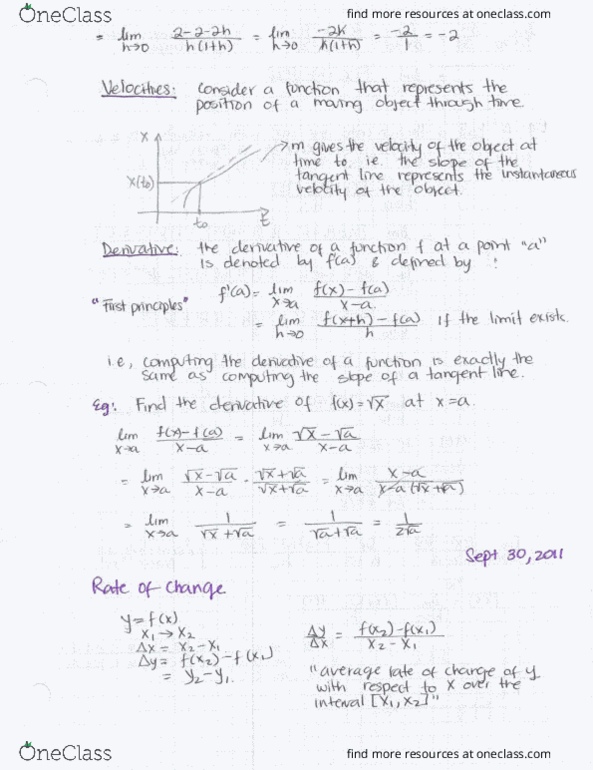 OneClass
find more resources at oneclass.com
= lim h→0 2-2-2h / h(1+h) = lim h→0 -2h / h(1+h) = -2/1 = -2
Velocities: Consider a function that represents the
position of a moving object through time.
X
→ m gives the velocity of the object at
time to, i.e. the slope of the
X(to)
tangent line represents the instantaneous
velocity of the object.
to
t
Derivative: the derivative of a function f at a point "a"
is denoted by f'(a) & defined by :
"First principles"
f'(a) = lim x→a f(x) - f(a) / x-a.
= lim h→0 f(x+h) - f(a) / h if the limit exists.
i.e, computing the derivative of a function is exactly the
same as computing the slope of a tangent line.
Eg: Find the derivative of f(x)=√x at x=a.
lim x→a f(x)-f(a) / x-a = lim x→a √x - √a / x-a
= lim x→a √x-√a / x-a · √x+√a / √x+√a = lim x→a x-a / x-a (√x+√a)
= lim x→a 1 / √x+√a = 1 / √a+√a = 1 / 2√a
Sept 30, 2011
Rate of Change
y=f(x)
x₁→x₂
Δx = x₂-x₁
Δy = f(x₂)-f(x₁)
= y₂-y₁.
Δy/Δx = f(x₂)-f(x₁) / x₂-x₁
"average rate of change of y
with respect to x over the
interval [x₁,x₂]"
OneClass
find more resources at oneclass.com